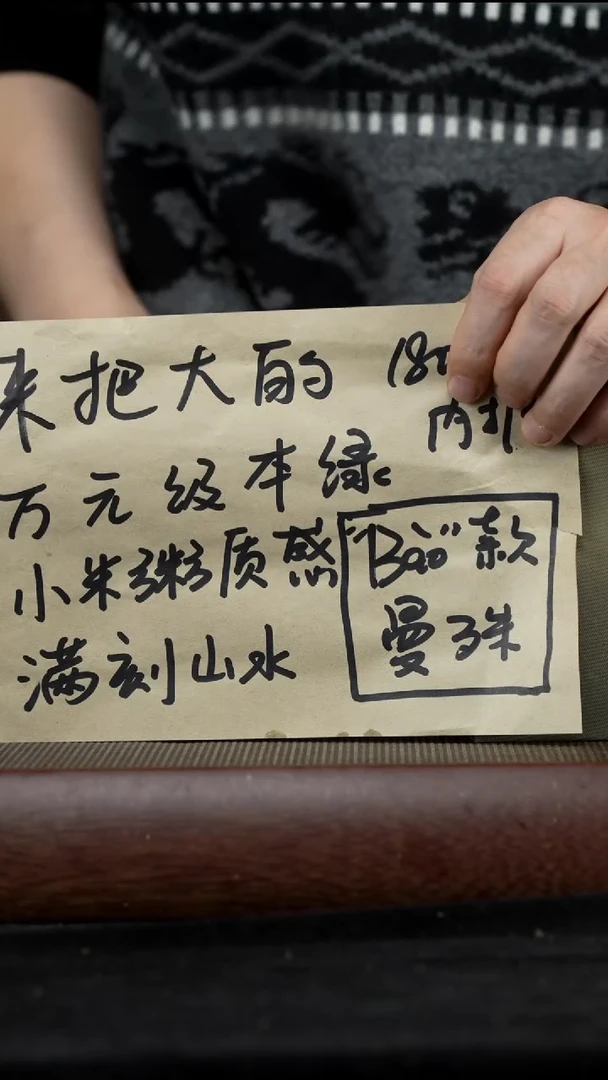 来把大的
180
内扒
万元级本绿
小米粥质感
满刻山水
"Bao"款
曼殊